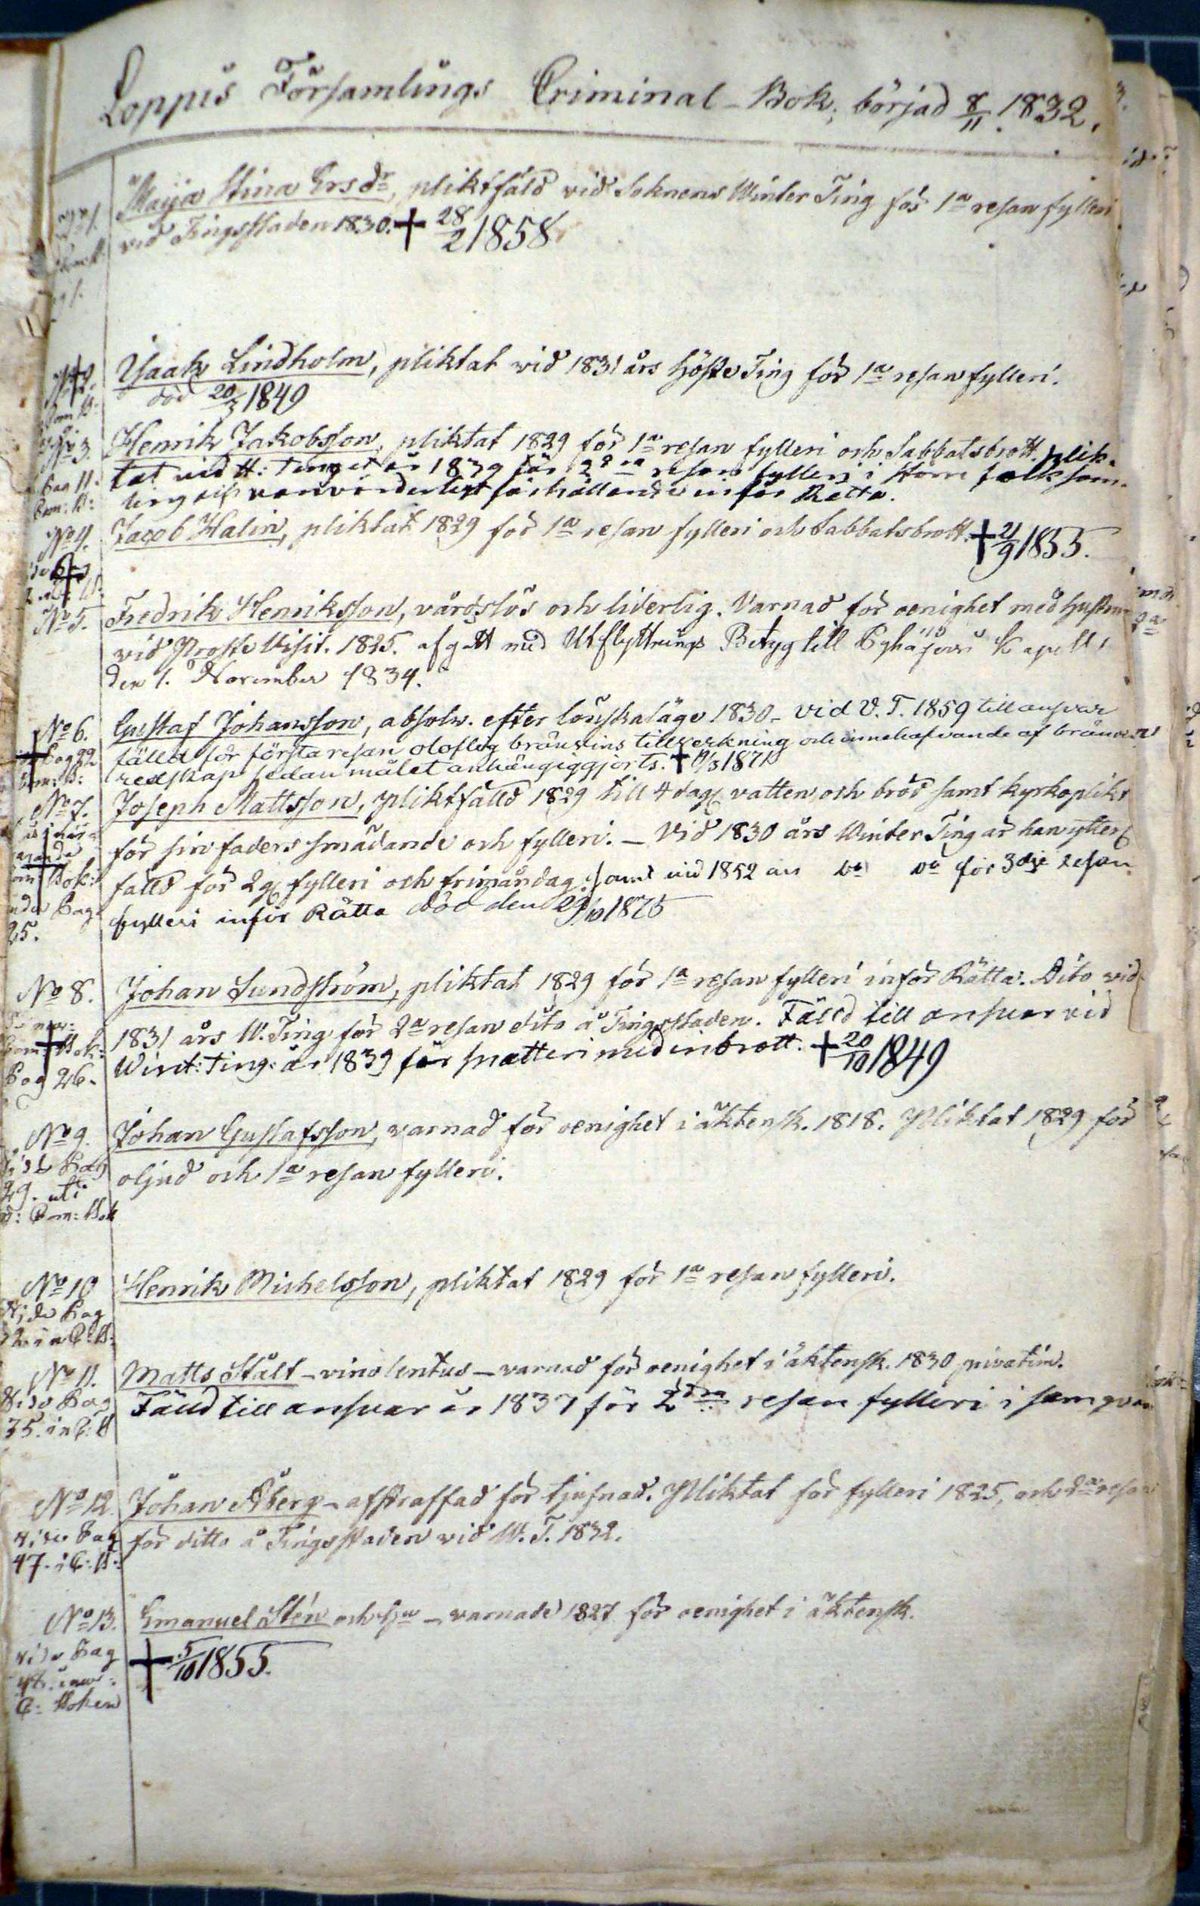 Loppis Församlings Criminal-Bok, börjad 8/11. 1832.
Maija Stina Ersdr, pliktfäld vid Soknens Winter Ting för 1a resan fylleri
vid Tingsstaden 1830. † 28/2 1858
No 2.
Isaak Lindholm, pliktat vid 1831 års Höste Ting för 1a resan fylleri.
död 20/3 1849
No 3. Henrik Jakobsson, pliktat 1829 för 1a resan fylleri och Sabbatsbrott. plik-
Pag 11. tat vid H: Tinget år 1839 för 2dra resan fylleri i större folksam-
Com: B: ling och vanvördeligt förhållande inför Rätta.
No 4. Jacob Halin, pliktat 1829 för 1a resan fylleri och Sabbatsbrott. † 21/9 1855.
No 5. Fredrik Henriksson, vårdslös och liderlig. Varnad för oenighet med hustrun
vid Proste Visit. 1825. afgått med Utflyttnings Betyg till Pyhäjärvi Kapell
den 1. November 1834.
No 6. Gustaf Johansson, absolv. efter lönskaläge 1830. - vid V. T. 1859 till ansvar
Pag 22 fälld för första resan oloflig bränvins tillverkning och innehafvande af bränvins
Com: B: redskap sedan målet anhängiggjorts. † 11/3 1871
No 7. Joseph Mattsson, pliktfälld 1829 till 4 dag. vatten och bröd samt kyrkoplikt
för sin faders smädande och fylleri. - Vid 1830 års Winter Ting är han ytterl.
Bok: fälld för 2g. fylleri och frimåndag. samt vid 1852 års do do för 3dje resan
Pag: fylleri inför Rätta död den 29/10 1875
25.
No 8. Johan Sundström, pliktat 1829 för 1a resan fylleri inför Rätta. Dito vid
1831 års W. Ting för 2a resan dito å Tingsstaden. Fälld till ansvar vid
Com: Bok: Wint: Ting: år 1839 för snatteri med inbrott. † 20/10 1849
Pag 26.
No 9. Johan Gustafsson, varnad för oenighet i äktensk. 1818. Pliktat 1829 för
vide Pag oljud och 1a resan fylleri.
29. uti
n: Com: Bok
No 10 Henrik Michelsson, pliktat 1829 för 1a resan fylleri.
Vide Pag
32 in C: B:
No 11. Matts Stålt - vinolentus - varnad för oenighet i äktensk. 1830 privatim.
Vide Pag Fälld till ansvar år 1837 för 2dra resan fylleri i samqväm
35. in C: B
No 12. Johan Åberg - afstraffad för tjufnad. Pliktat för fylleri 1825, och 2a resan
Vide Pag för ditto å Tingsstaden vid W. T. 1832.
47. i C: B:
No 13. Emanuel Stén och hu - varnade 1827 för oenighet i äktensk.
vide Pag † 5/10 1855.
C: Boken